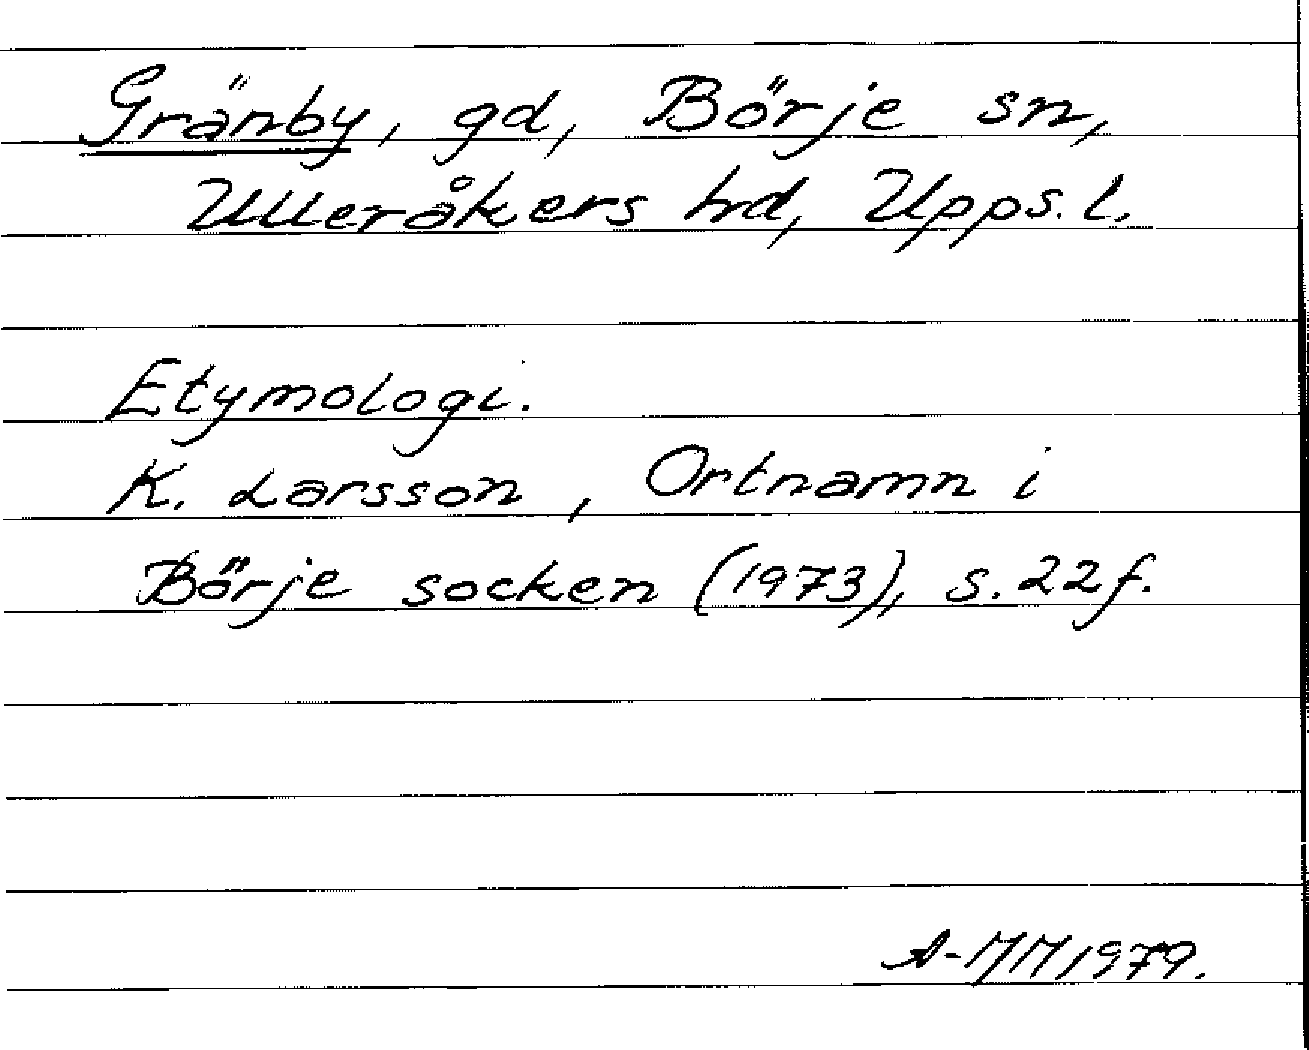 Gränby, gd, Börje sn,
Ulleråkers hd, Upps. l.
Etymologi.
K. Larsson, Ortnamn i
Börje socken (1973), s. 22 f.
A-MM 1979.